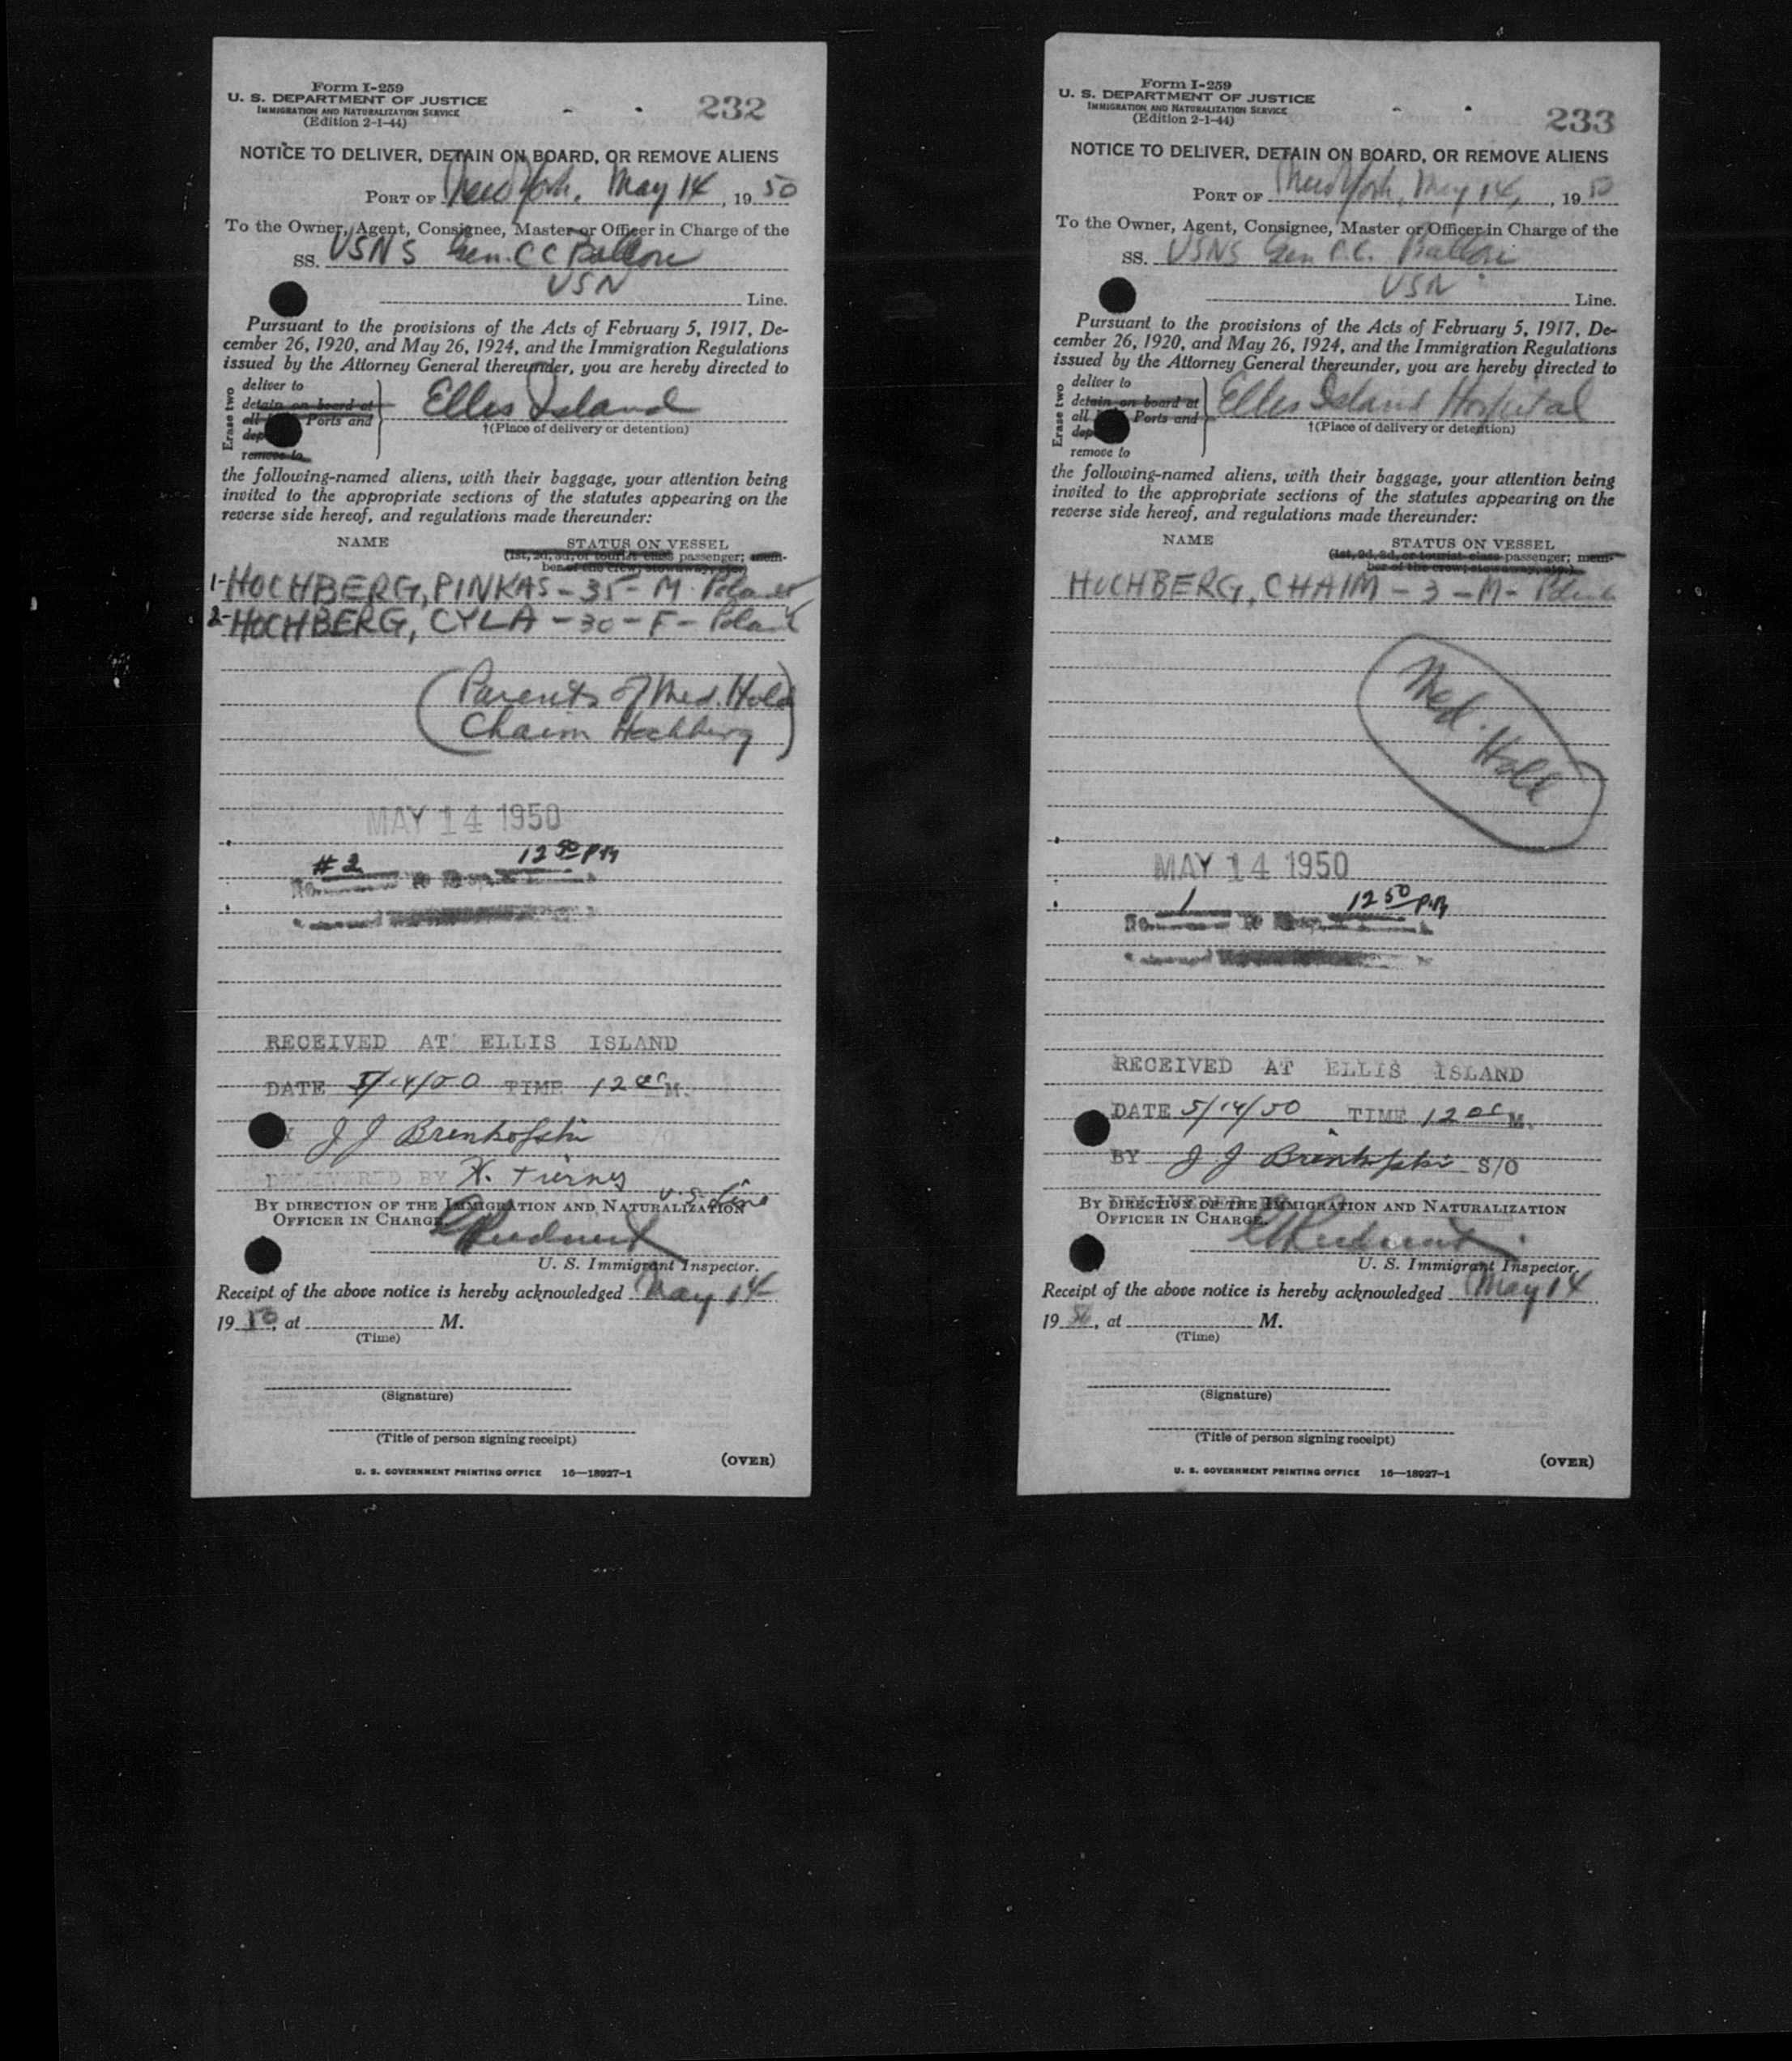 Form I-259
U. S. DEPARTMENT OF JUSTICE
IMMIGRATION AND NATURALIZATION SERVICE
(Edition 2-1-44)
232
NOTICE TO DELIVER, DETAIN ON BOARD, OR REMOVE ALIENS
PORT OF New York, May 14, 1950
To the Owner, Agent, Consignee, Master or Officer in Charge of the
SS. USNS Gen. C C Ballou
USN Line.
Pursuant to the provisions of the Acts of February 5, 1917, De-
cember 26, 1920, and May 26, 1924, and the Immigration Regulations
issued by the Attorney General thereunder, you are hereby directed to
Erase two
deliver to
detain on board at
all Ports and
remove to
Ellis Island
†(Place of delivery or detention)
the following-named aliens, with their baggage, your attention being
invited to the appropriate sections of the statutes appearing on the
reverse side hereof, and regulations made thereunder:
NAME STATUS ON VESSEL
(1st, 2d, 3d, or tourist class passenger; mem-
ber of the crew; stowaway, etc.)
1-HOCHBERG, PINKAS - 35 - M - Poland
2-HOCHBERG, CYLA - 30 - F - Poland
(Parents of Med. Hold
Chaim Hochberg)
MAY 14 1950
# 2 12 50 PM
RECEIVED AT ELLIS ISLAND
DATE 5/14/50 TIME 12 M.
J J
DELIVERED BY
U.S. Line
BY DIRECTION OF THE IMMIGRATION AND NATURALIZATION
OFFICER IN CHARGE.
U. S. Immigrant Inspector.
Receipt of the above notice is hereby acknowledged May 14
1950, at M.
(Time)
(Signature)
(Title of person signing receipt)
(OVER)
U. S. GOVERNMENT PRINTING OFFICE 16—18927-1
Form I-259
U. S. DEPARTMENT OF JUSTICE
IMMIGRATION AND NATURALIZATION SERVICE
(Edition 2-1-44)
233
NOTICE TO DELIVER, DETAIN ON BOARD, OR REMOVE ALIENS
PORT OF New York, May 14, 1950
To the Owner, Agent, Consignee, Master or Officer in Charge of the
SS. USNS Gen C.C. Ballou
USN Line.
Pursuant to the provisions of the Acts of February 5, 1917, De-
cember 26, 1920, and May 26, 1924, and the Immigration Regulations
issued by the Attorney General thereunder, you are hereby directed to
Erase two
deliver to
detain on board at
all Ports and
remove to
Ellis Island Hospital
†(Place of delivery or detention)
the following-named aliens, with their baggage, your attention being
invited to the appropriate sections of the statutes appearing on the
reverse side hereof, and regulations made thereunder:
NAME STATUS ON VESSEL
(1st, 2d, 3d, or tourist class passenger; mem-
ber of the crew; stowaway, etc.)
HOCHBERG, CHAIM - 3 - M - Poland
Med. Hold
MAY 14 1950
No. 1 12 50 P.M
RECEIVED AT ELLIS ISLAND
DATE 5/14/50 TIME 12 M.
BY J J S/O
BY DIRECTION OF THE IMMIGRATION AND NATURALIZATION
OFFICER IN CHARGE.
U. S. Immigrant Inspector.
Receipt of the above notice is hereby acknowledged May 14
1950, at M.
(Time)
(Signature)
(Title of person signing receipt)
(OVER)
U. S. GOVERNMENT PRINTING OFFICE 16—18927-1